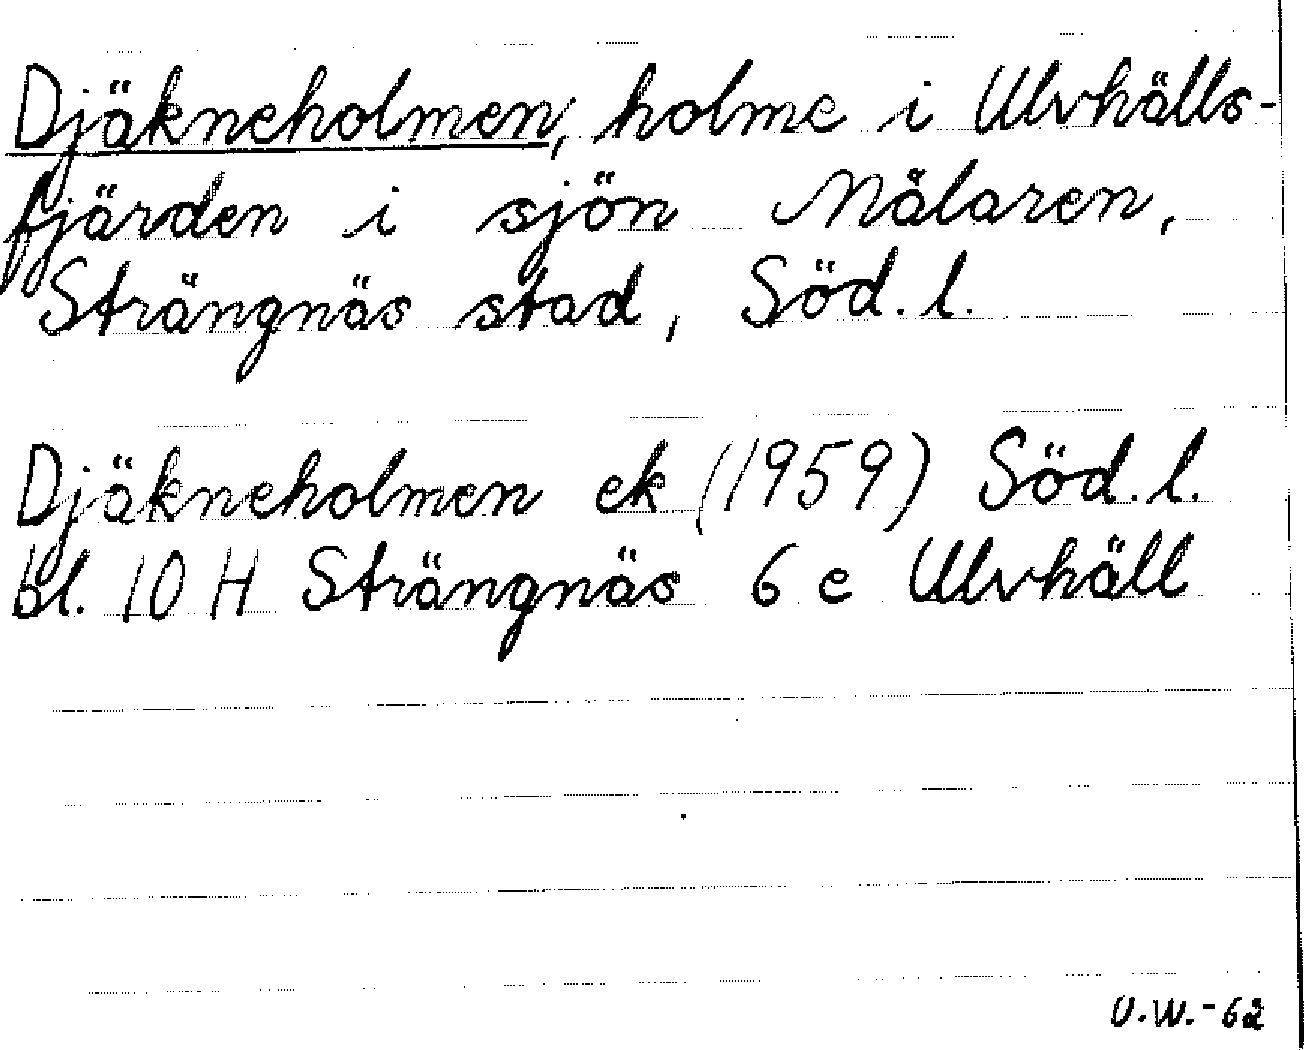 Djäkneholmen, holme i Ulvhälls-
fjärden i sjön Mälaren,
Strängnäs stad, Söd. l.
Djäkneholmen ek (1959) Söd. l.
bl. 10 H Strängnäs 6 e Ulvhäll
U.W.-62